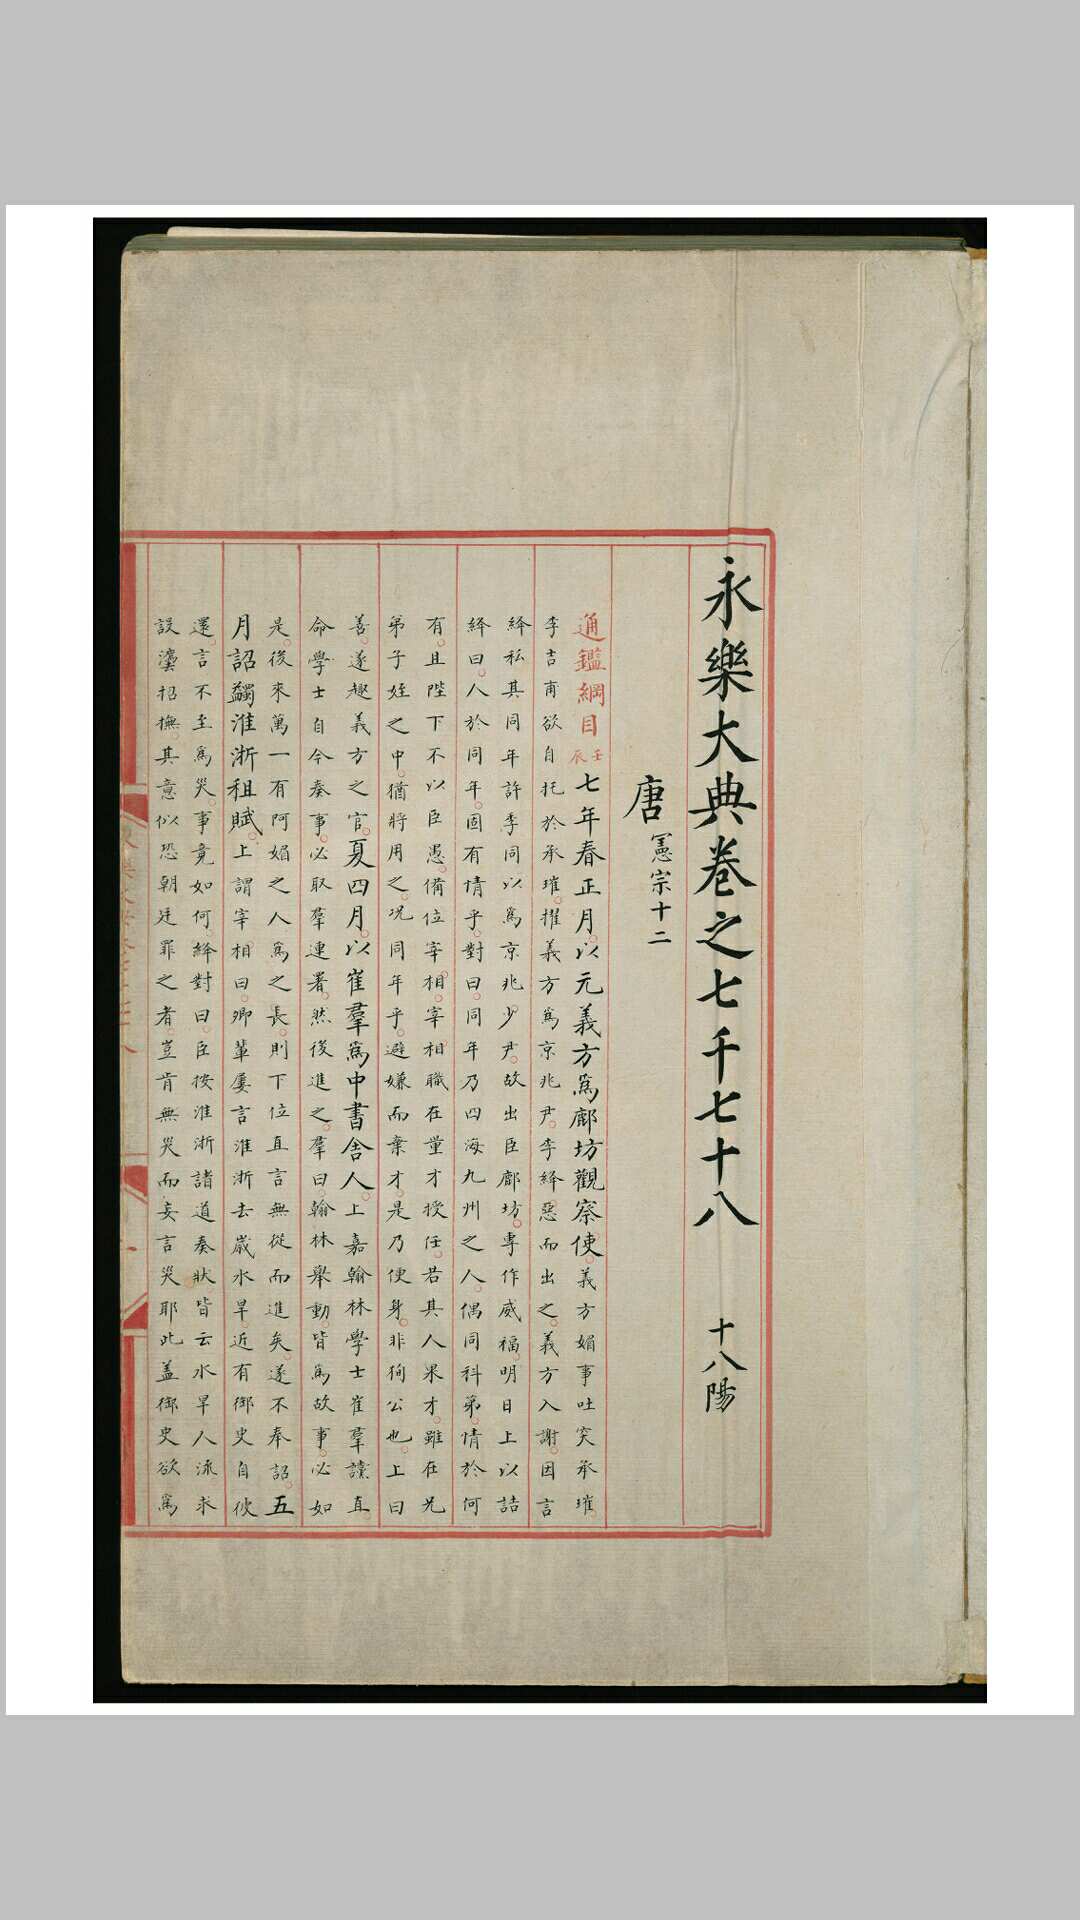 永樂大典卷之七千七十八　十八陽
唐　憲宗十二
通鑑綱目壬辰七年春正月以元義方為鄜坊觀察使義方媚事吐突承璀
李吉甫欲自托於承璀擢義方為京兆尹李絳惡而出之義方入謝因言
絳私其同年許季同以為京兆少尹故出臣鄜坊專作威福明日上以詰
絳曰人於同年固有情乎對曰同年乃四海九州之人偶同科第情於何
有且陛下不以臣愚備位宰相宰相職在量才授任若其人果才雖在兄
弟子姪之中猶將用之况同年乎避嫌而棄才是乃便身非徇公也上曰
善遂趣義方之官夏四月以崔羣為中書舍人上嘉翰林學士崔羣讜直
命學士自今奏事必取羣連署然後進之羣曰翰林舉動皆為故事必如
是後來萬一有阿媚之人為之長則下位直言無從而進矣遂不奉詔五
月詔蠲淮浙租賦上謂宰相曰卿輩屢言淮浙去歲水旱近有御史自彼
還言不至為災事竟如何絳對曰臣按淮浙諸道奏狀皆云水旱人流求
設灋招撫其意似恐朝廷罪之者豈肯無災而妄言災耶此盖御史欲為